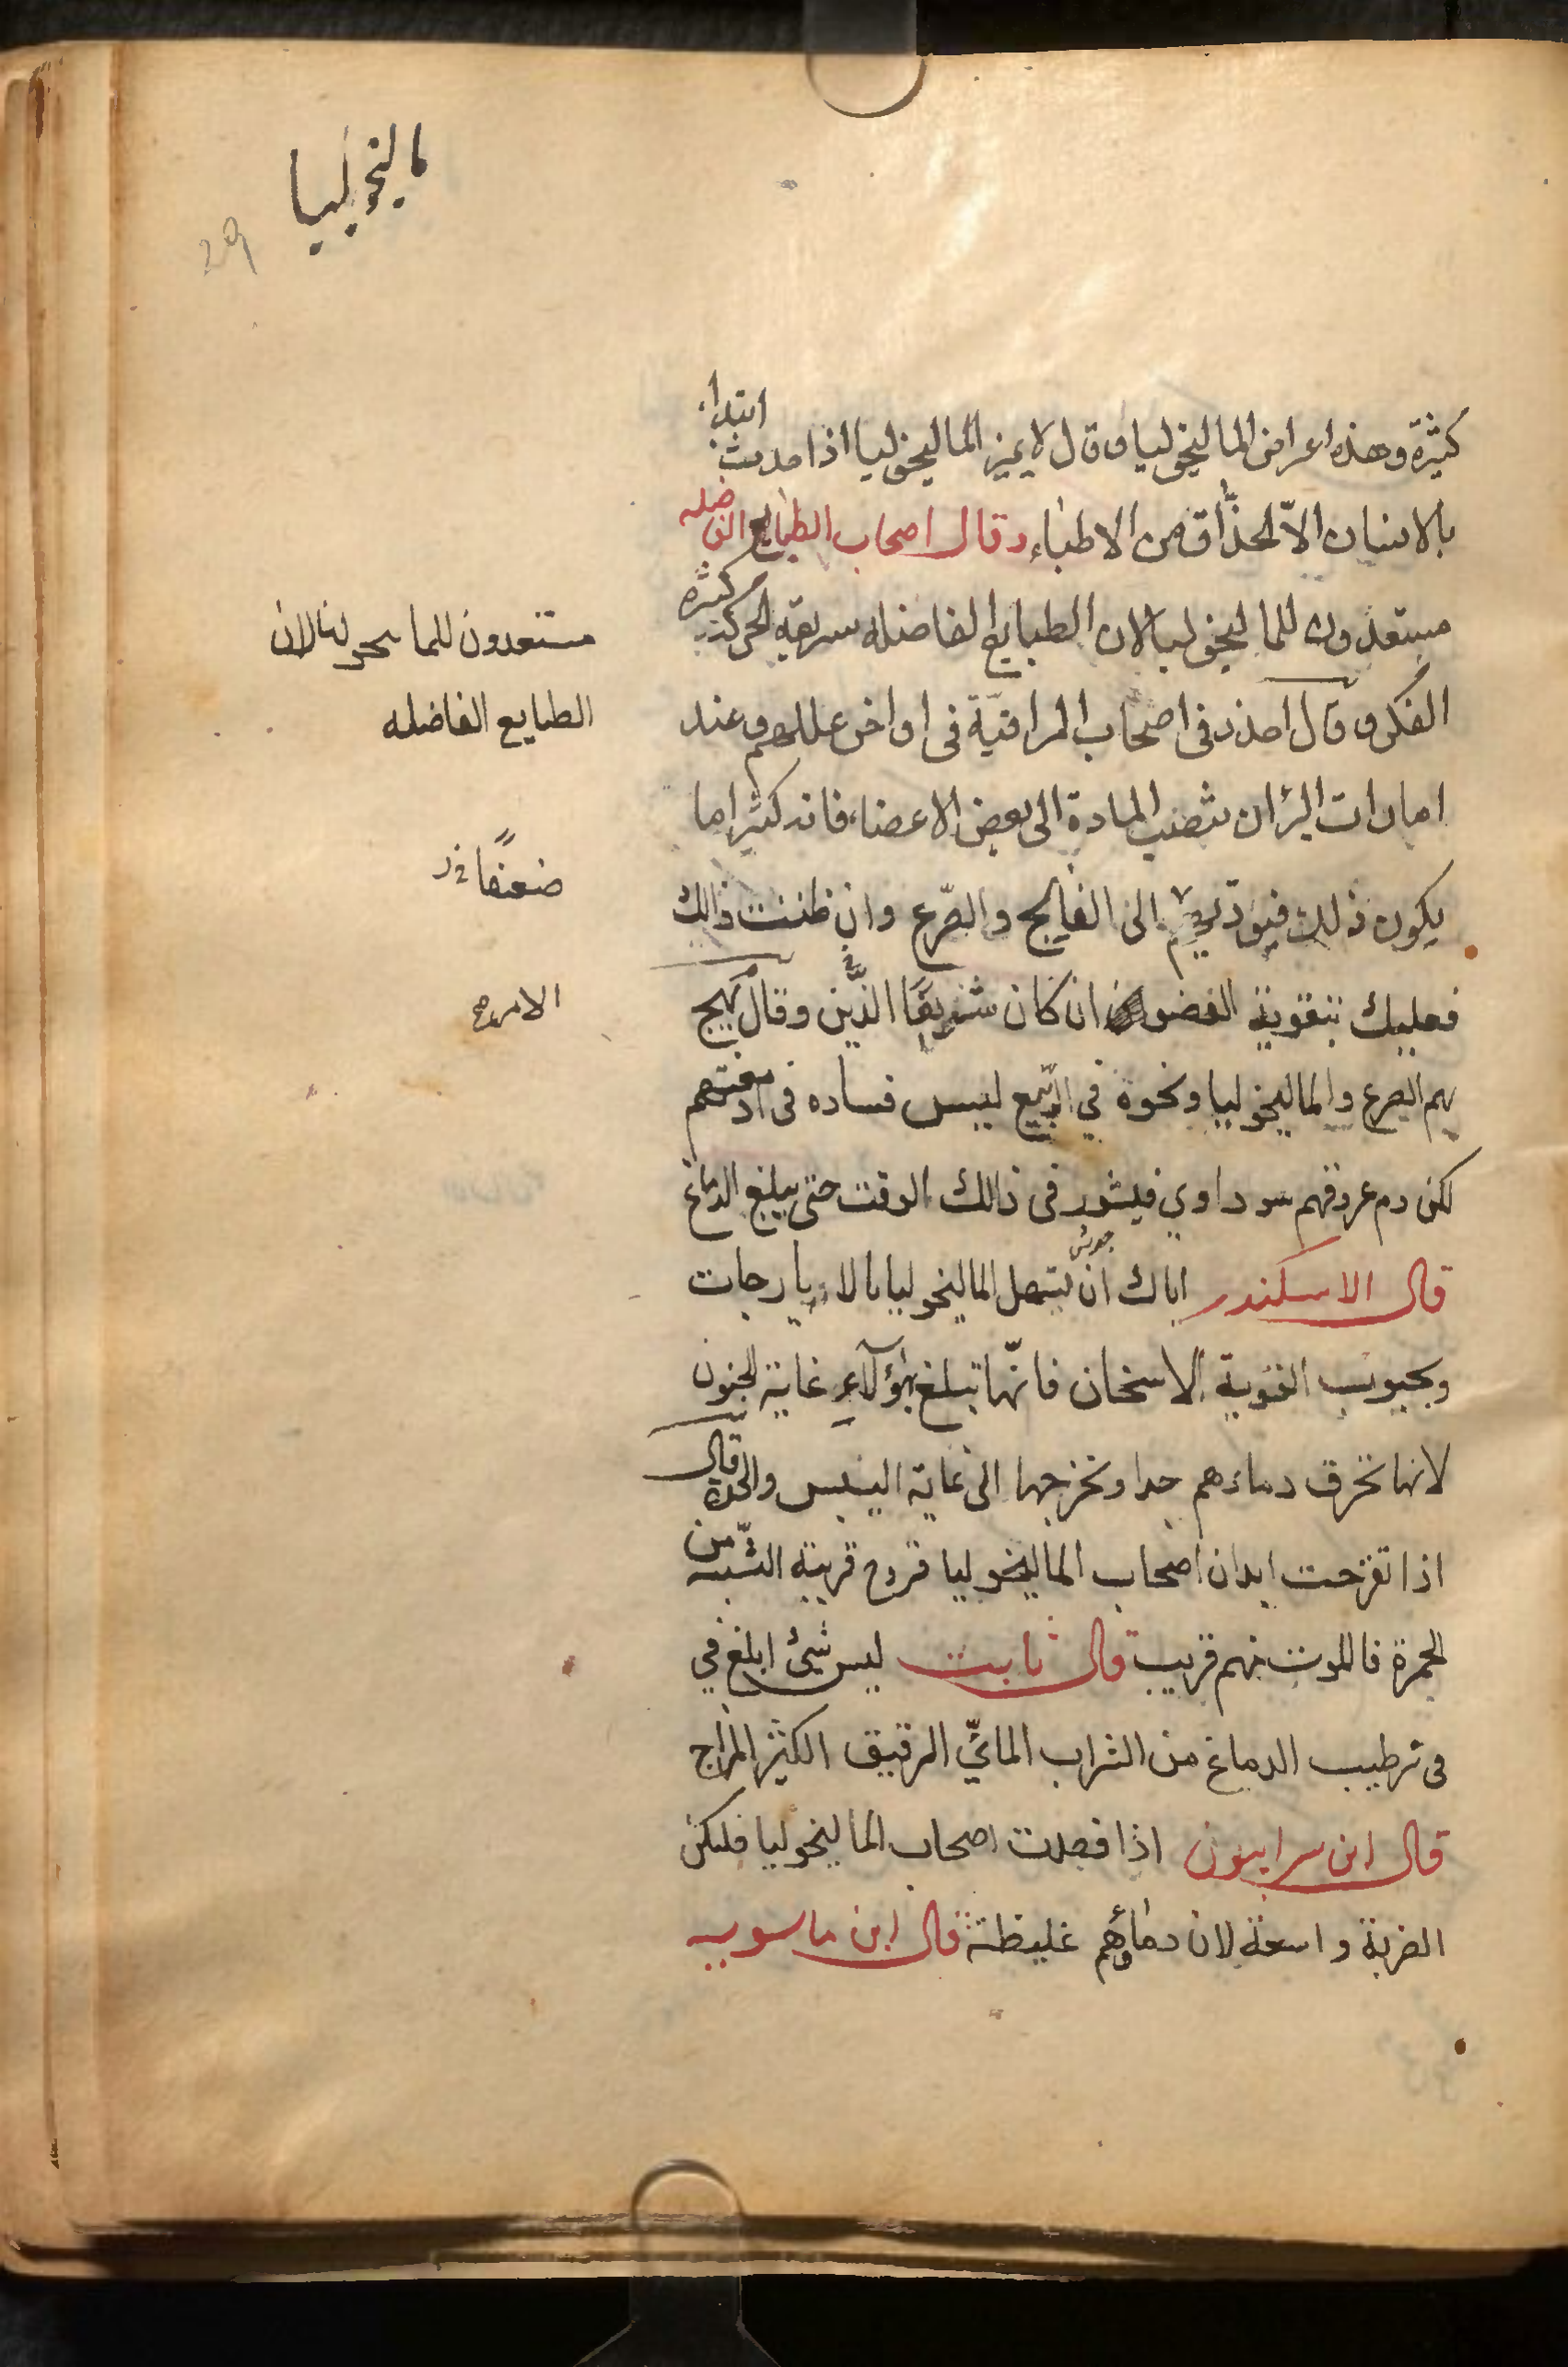 ماليخوليا
29
كثيرة وهذه اعراض الماليخوليا وقال لا يميز الماليخوليا اذا حدثت ابتداء
بالانسان الّا الحذّاق من الاطباء وقال اصحاب الطبايع الفاضله
مستعدون للماليخوليا لان الطبايع الفاضله سريعة الحركة كثيره
الفكر وقال احذر فى اصحاب المراقيّة فى اواخر عللهم وعند
امارات البرٔ ان تنصب المادة الى بعض الاعضاء فانه كثيرا ما
يكون ذلك فيؤدّيهم الى الفالج والصّرع وان ظننت ذالك
فعليك بتقوية العضو ان كان شريفًا الذّين وقال يهيج
بهم الصرع والماليخوليا ونحوة في الرّبيع ليس فساده فى ادمغتهم
لكن دم عروقهم سوداوي فيثور فى ذالك الوقت حتى يبلغ الدماغ
قال الاسكندر اياك ان تسهل الماليخوليا بالايارجات
وبحبوب القوية الاسخان فانّها تبلغ بهؤلآءِ غاية الجنون
لانها تحرق دماءهم جدا وتخرجها الى غاية اليبس والحدة قال
اذا تقرحت ابدان اصحاب الماليخوليا قروح قريبة الشّبه من
الجمرة فالموت منهم قريب قال ثابت ليس شيئ ابلغ في
فى ترطيب الدماغ من الشراب المائيّ الرقيق الكثير المزاج
قال ابن سرابيون اذا فصدت اصحاب الماليخوليا فليكن
الضربة واسعة لان دماؤهم غليظة قال ابن ماسويه
مستعدون للماليحوليا لان
الطبايع الفاضله
ضعفًا